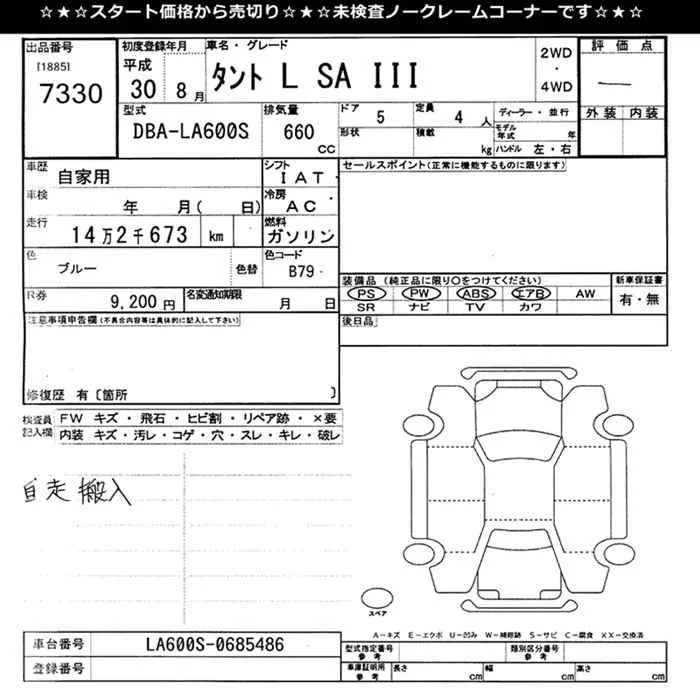 ☆★☆スタート価格から売切り☆★☆未検査ノークレームコーナーです☆★☆
出品番号 [1885] 7330
初度登録年月 平成 30 8月
車名・グレード タント L SA III
2WD ・ 4WD
評価点 —
外装 内装
型式 DBA-LA600S
排気量 660 CC
ドア 5 形状
定員 4 人 積載 kg
ディーラー・並行
モデル年式 年
ハンドル 左・右
車歴 自家用
シフト IAT
車検 年 月( 日)
冷房 AC
走行 14万2千673 km
燃料 ガソリン
色 ブルー 色替
色コード B79
R券 9,200円
名変通知期限 月 日
セールスポイント(正常に機能するものに限ります)
装備品(純正品に限り〇をつけてください)
PS PW ABS エアB AW
SR ナビ TV カワ
新車保証書 有・無
後日品
注意事項申告欄(不具合内容等は具体的に記入して下さい)
修復歴 有〔箇所 〕
検査員記入欄
FW キズ・飛石・ヒビ割・リペア跡・×要
内装 キズ・汚レ・コゲ・穴・スレ・キレ・破レ
自走搬入
スペア
A-キズ E-エクボ U-凹み W-補修跡 S-サビ C-腐食 XX-交換済
車台番号 LA600S-0685486
登録番号
型式指定番号 参考
類別区分番号 参考
車庫証明用 参考 長さ cm 幅 cm 高さ cm